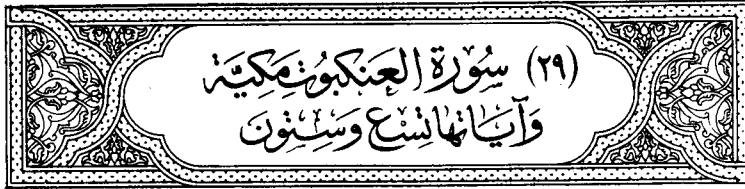 (٢٩) سُورَة العَنكبُوتِ مَكِيَّة
وَآيَاتُهَا تِسْع وَسِتُّونَ